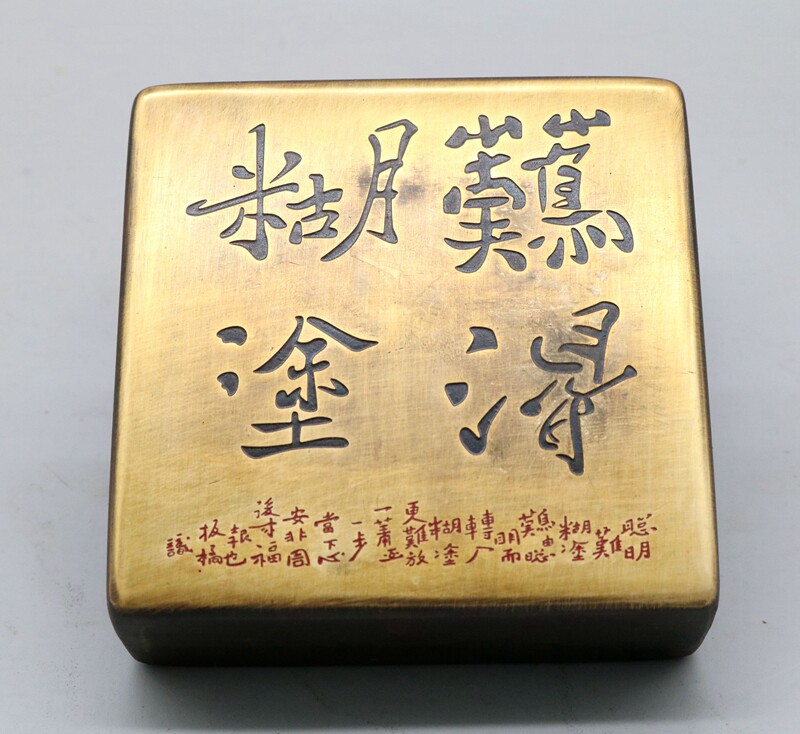 難得
糊塗
聡明
難
糊塗
難由聡
明而
轉入
糊塗
更難放
一
一步
當下心
安非圖
後福
報也
板橋
識